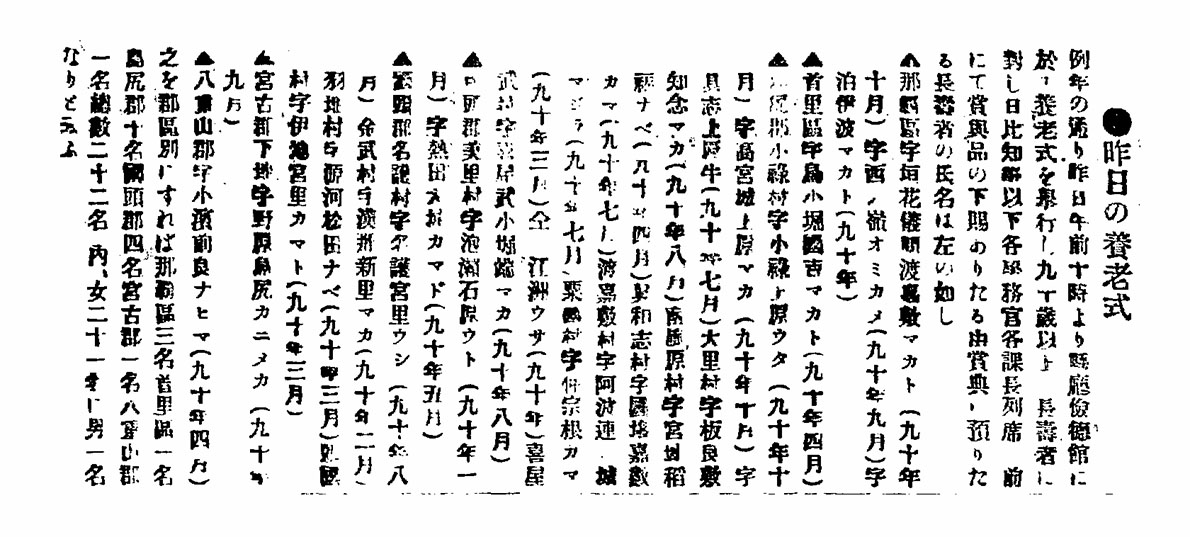 ●昨日の養老式
例年の通り昨日午前十時より縣廳儉德館に
於て養老式を擧行し九十歲以上 長壽者に
對し日比知事以下各事務官各課長列席 前
にて賞與品の下賜ありたる由賞典に預りた
る長壽者の氏名は左の如し
▲那覇區字垣花儀間渡嘉敷マカト(九十年
十月)字西ノ嶺オミカメ(九十年九月)字
泊伊波マカト(九十年)
▲首里區字鳥小堀國吉マカト(九十年四月)
郡小祿村字小祿上原ウタ(九十年十
月)字高宮城上原マカ(九十年十月)字
具志上原牛(九十年七月)大里村字板良敷
知念マカ(九十年八月)南風原村字宮城稻
福ナベ(九十年四月)眞和志村字國場嘉數
カマ(九十年七月)渡嘉敷村字阿波連 城
マジラ(九十年七月)粟國村字 仲宗根カマ
(九十年三月)仝 江洲ウサ(九十年)喜屋
武村字喜屋武小堀 マカ(九十年八月)
▲中頭郡美里村字泡瀨石原ウト(九十年一
月)字熱田大城カマド(九十年五月)
▲國頭郡名護村字名護宮里ウシ(九十年八
月)金武村字漢那新里マカ(九十年二月)
羽地村字源河松田ナベ(九十年三月) 國
村字伊地宮里カマト(九十年三月)
▲宮古郡下地字野原島尻カニメカ(九十年
九月)
▲八重山郡字小濱前良ナヒマ(九十年四月)
之を郡區別にすれば那覇區三名首里區一名
島尻郡十名國頭郡四名宮古郡一名八重山郡
一名總數二十二名 內、女二十一名に男一名
なりと云ふ